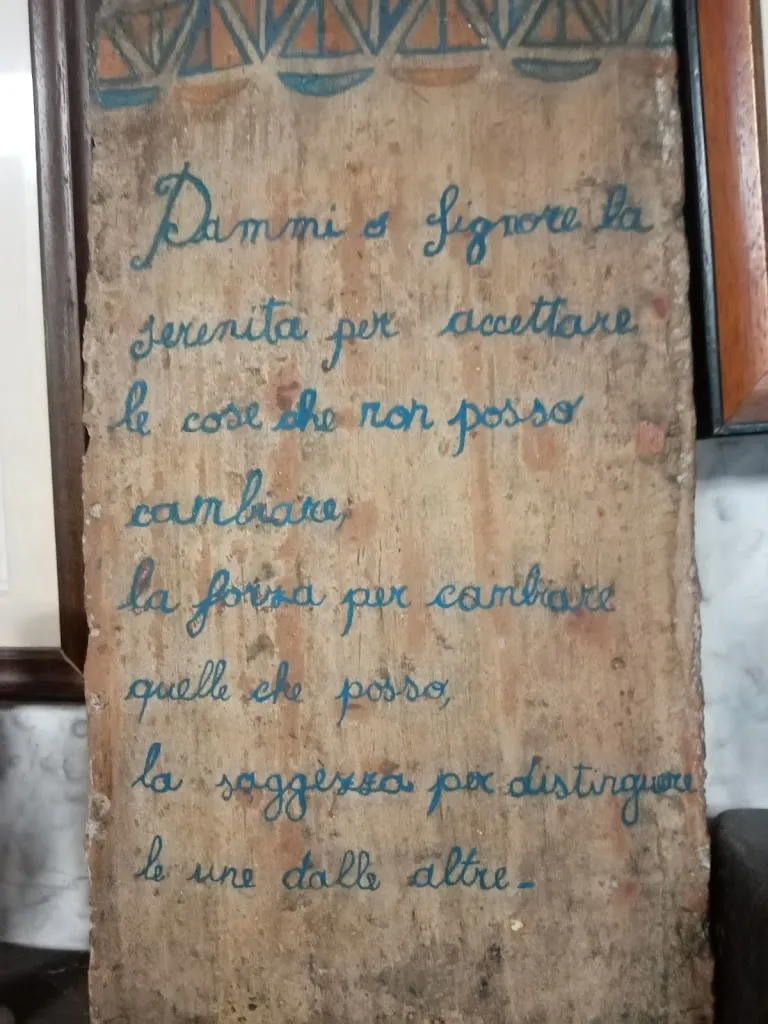 Dammi o Signore la
serenita per accettare
le cose che non posso
cambiare,
la forza per cambiare
quelle che posso,
la saggezza per distinguere
le une dalle altre-